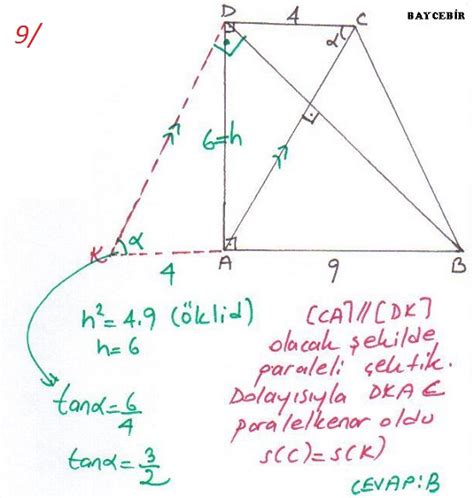 9/
BAYCEBİR
D 4 C
α
6=h
K α
A
B
4
9
h²=4.9 (öklid)
h=6
tanα=6/4
tanα=3/2
[CA]//[DK]
olacak şekilde
paraleli çektik.
Dolayısıyla DKAC
paralelkenar oldu
s(C)=s(K)
CEVAP:B